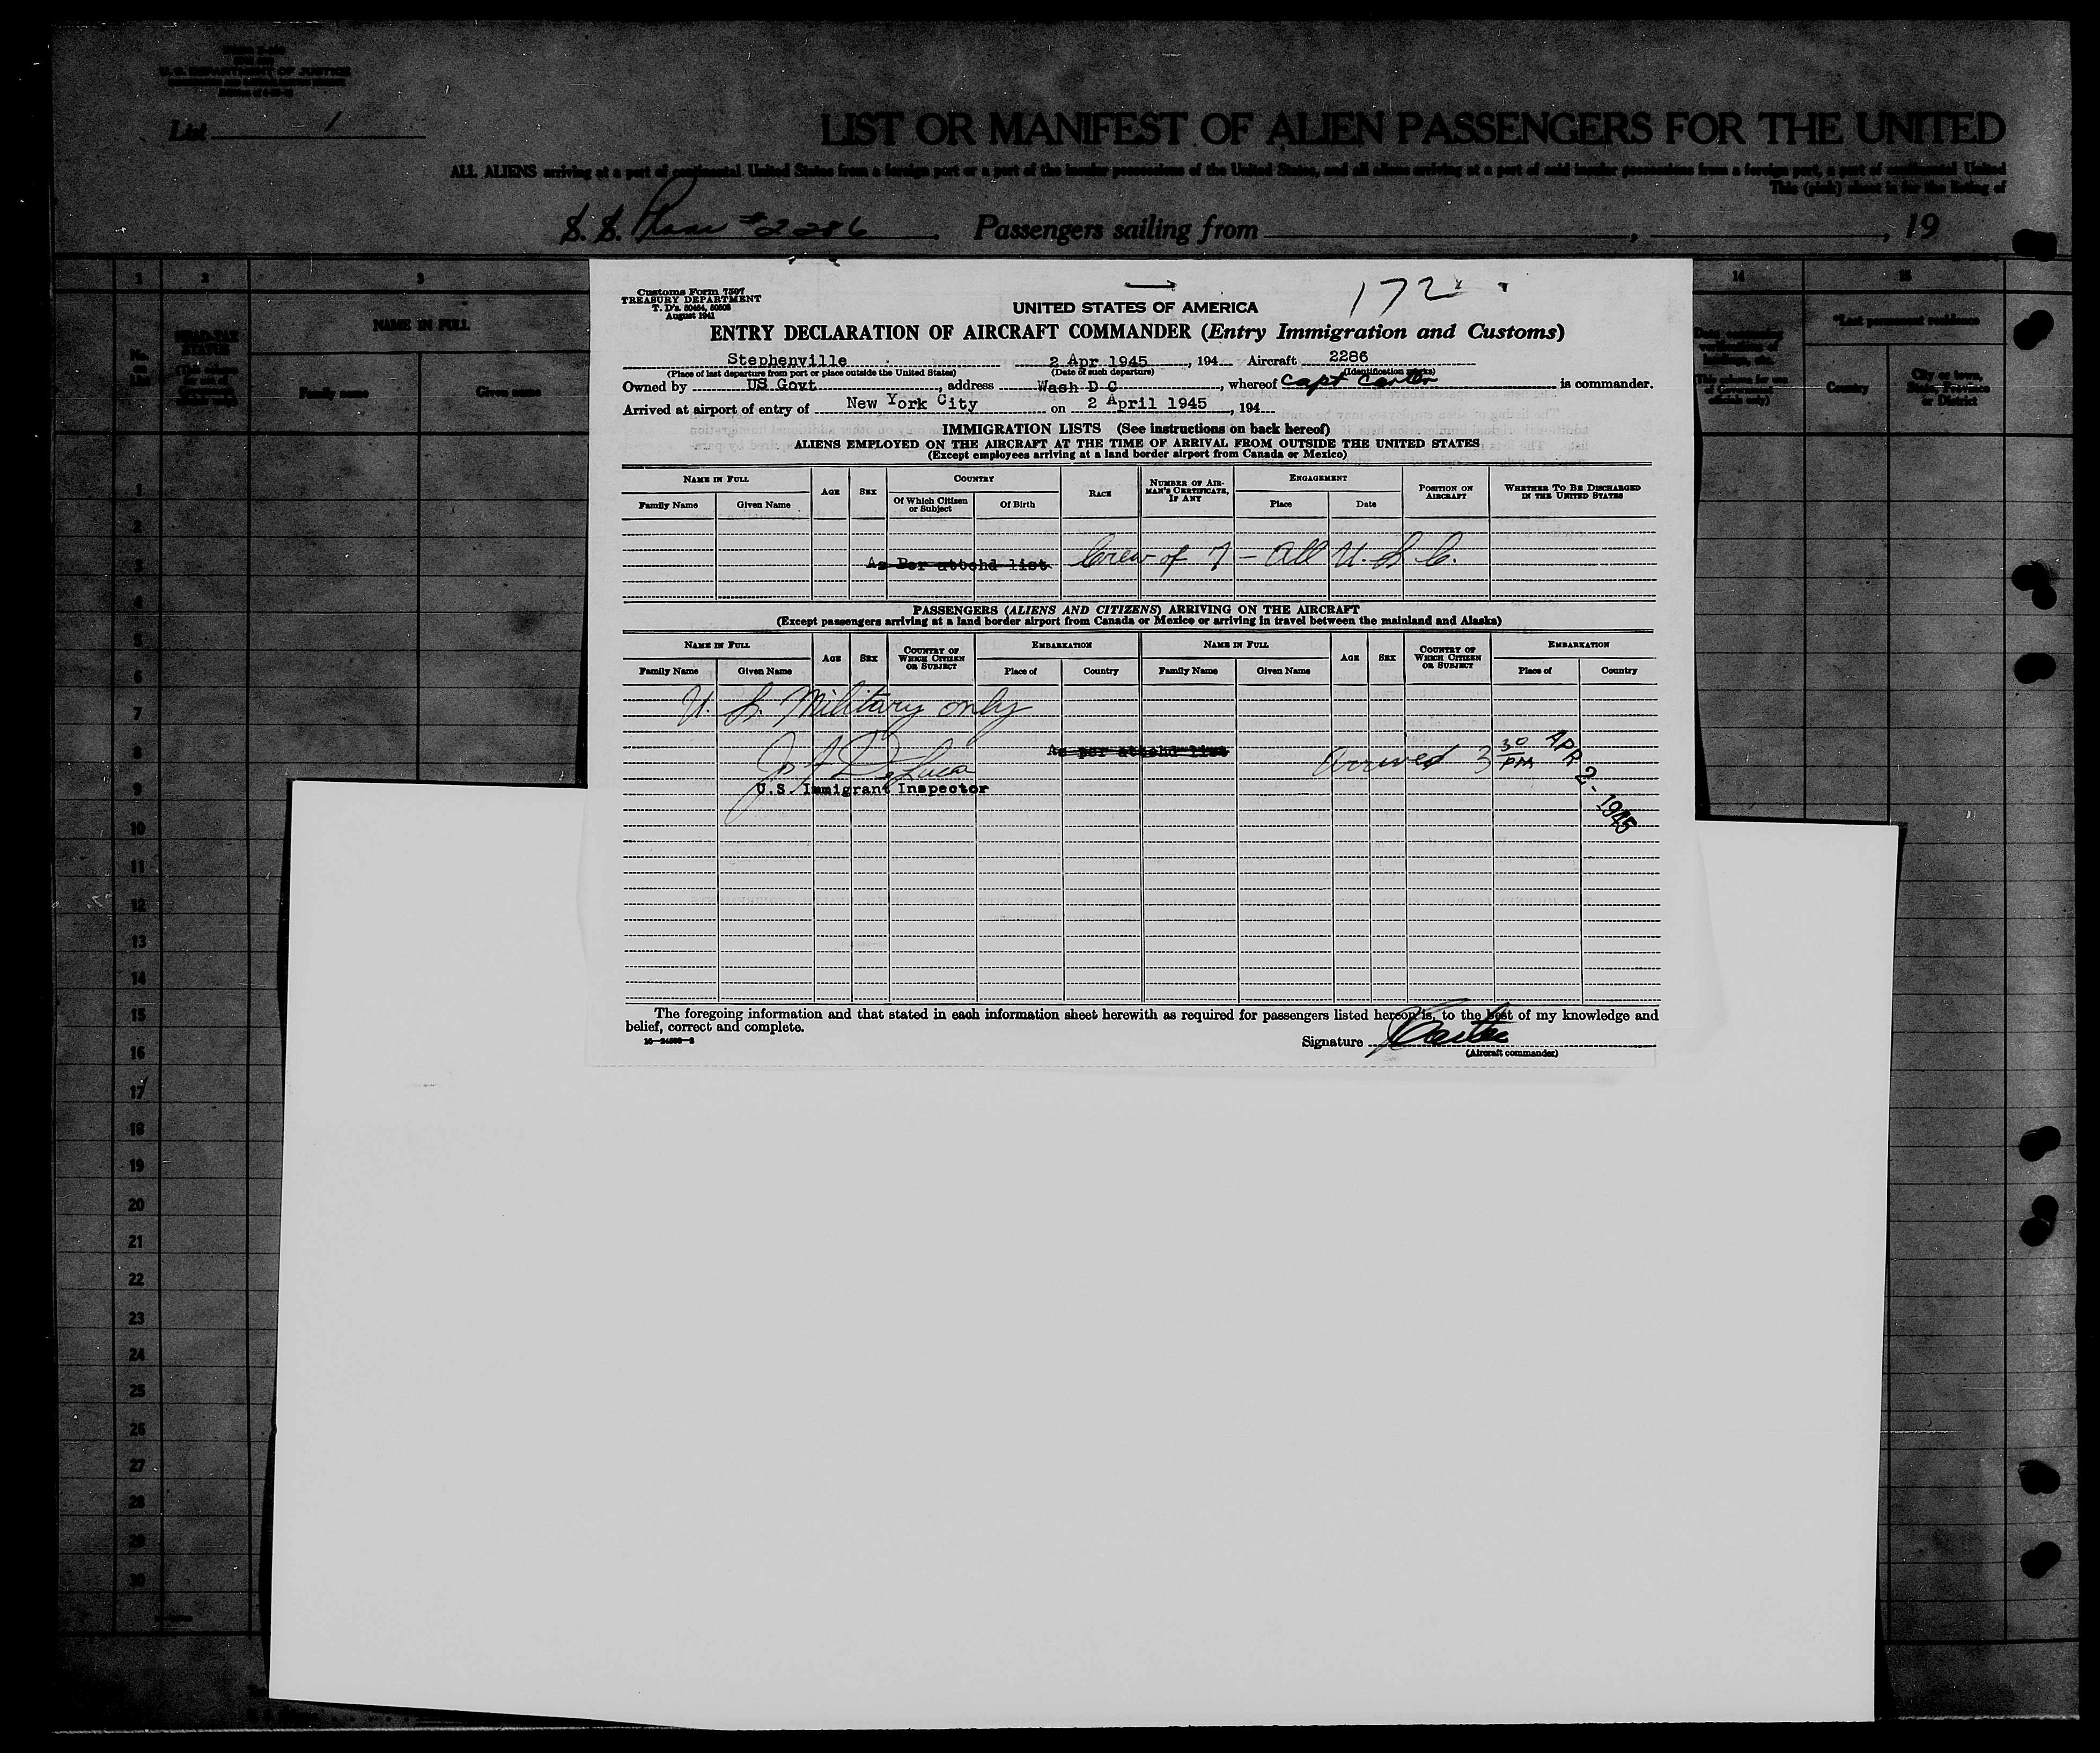 U. S. DEPARTMENT OF JUSTICE
List 1
LIST OR MANIFEST OF ALIEN PASSENGERS FOR THE UNITED
ALL ALIENS arriving at a port of continental United States from a foreign port or a port of the insular possessions of the United States, and all aliens arriving at a port of said insular possessions from a foreign port, a port of continental United
This (pink) sheet is for the listing of
S. S. Plane #2286 Passengers sailing from , , 19
1 2 3 14 15
HEAD-TAX STATUS
NAME IN FULL
*Last permanent residence
No. on List
Family name Given name
Country City or town, State, Province or District
Customs Form 7507
TREASURY DEPARTMENT
T. D's. 50464, 50503
August 1941
172
UNITED STATES OF AMERICA
ENTRY DECLARATION OF AIRCRAFT COMMANDER (Entry Immigration and Customs)
Stephenville 2 Apr 1945, 194 Aircraft 2286
(Place of last departure from port or place outside the United States) (Date of such departure) (Identification marks)
Owned by US Govt, address Wash D C, whereof Capt Carter is commander.
Arrived at airport of entry of New York City on 2 April 1945, 194
IMMIGRATION LISTS (See instructions on back hereof)
ALIENS EMPLOYED ON THE AIRCRAFT AT THE TIME OF ARRIVAL FROM OUTSIDE THE UNITED STATES
(Except employees arriving at a land border airport from Canada or Mexico)
NAME IN FULL AGE SEX COUNTRY RACE NUMBER OF AIRMAN'S CERTIFICATE, IF ANY ENGAGEMENT POSITION ON AIRCRAFT WHETHER TO BE DISCHARGED IN THE UNITED STATES
Family Name Given Name Of Which Citizen or Subject Of Birth Place Date
As Per attchd list Crew of 7 - All U. S. C.
PASSENGERS (ALIENS AND CITIZENS) ARRIVING ON THE AIRCRAFT
(Except passengers arriving at a land border airport from Canada or Mexico or arriving in travel between the mainland and Alaska)
NAME IN FULL AGE SEX COUNTRY OF WHICH CITIZEN OR SUBJECT EMBARKATION NAME IN FULL AGE SEX COUNTRY OF WHICH CITIZEN OR SUBJECT EMBARKATION
Family Name Given Name Place of Country Family Name Given Name Place of Country
U. S. Military only
As per attchd list
Arrived 3 30 PM APR 2 - 1945
DeLuca
U.S. Immigrant Inspector
The foregoing information and that stated in each information sheet herewith as required for passengers listed hereon is, to the best of my knowledge and
belief, correct and complete.
Signature Carter
(Aircraft commander)
1
2
3
4
5
6
7
8
9
10
11
12
13
14
15
16
17
18
19
20
21
22
23
24
25
26
27
28
29
30